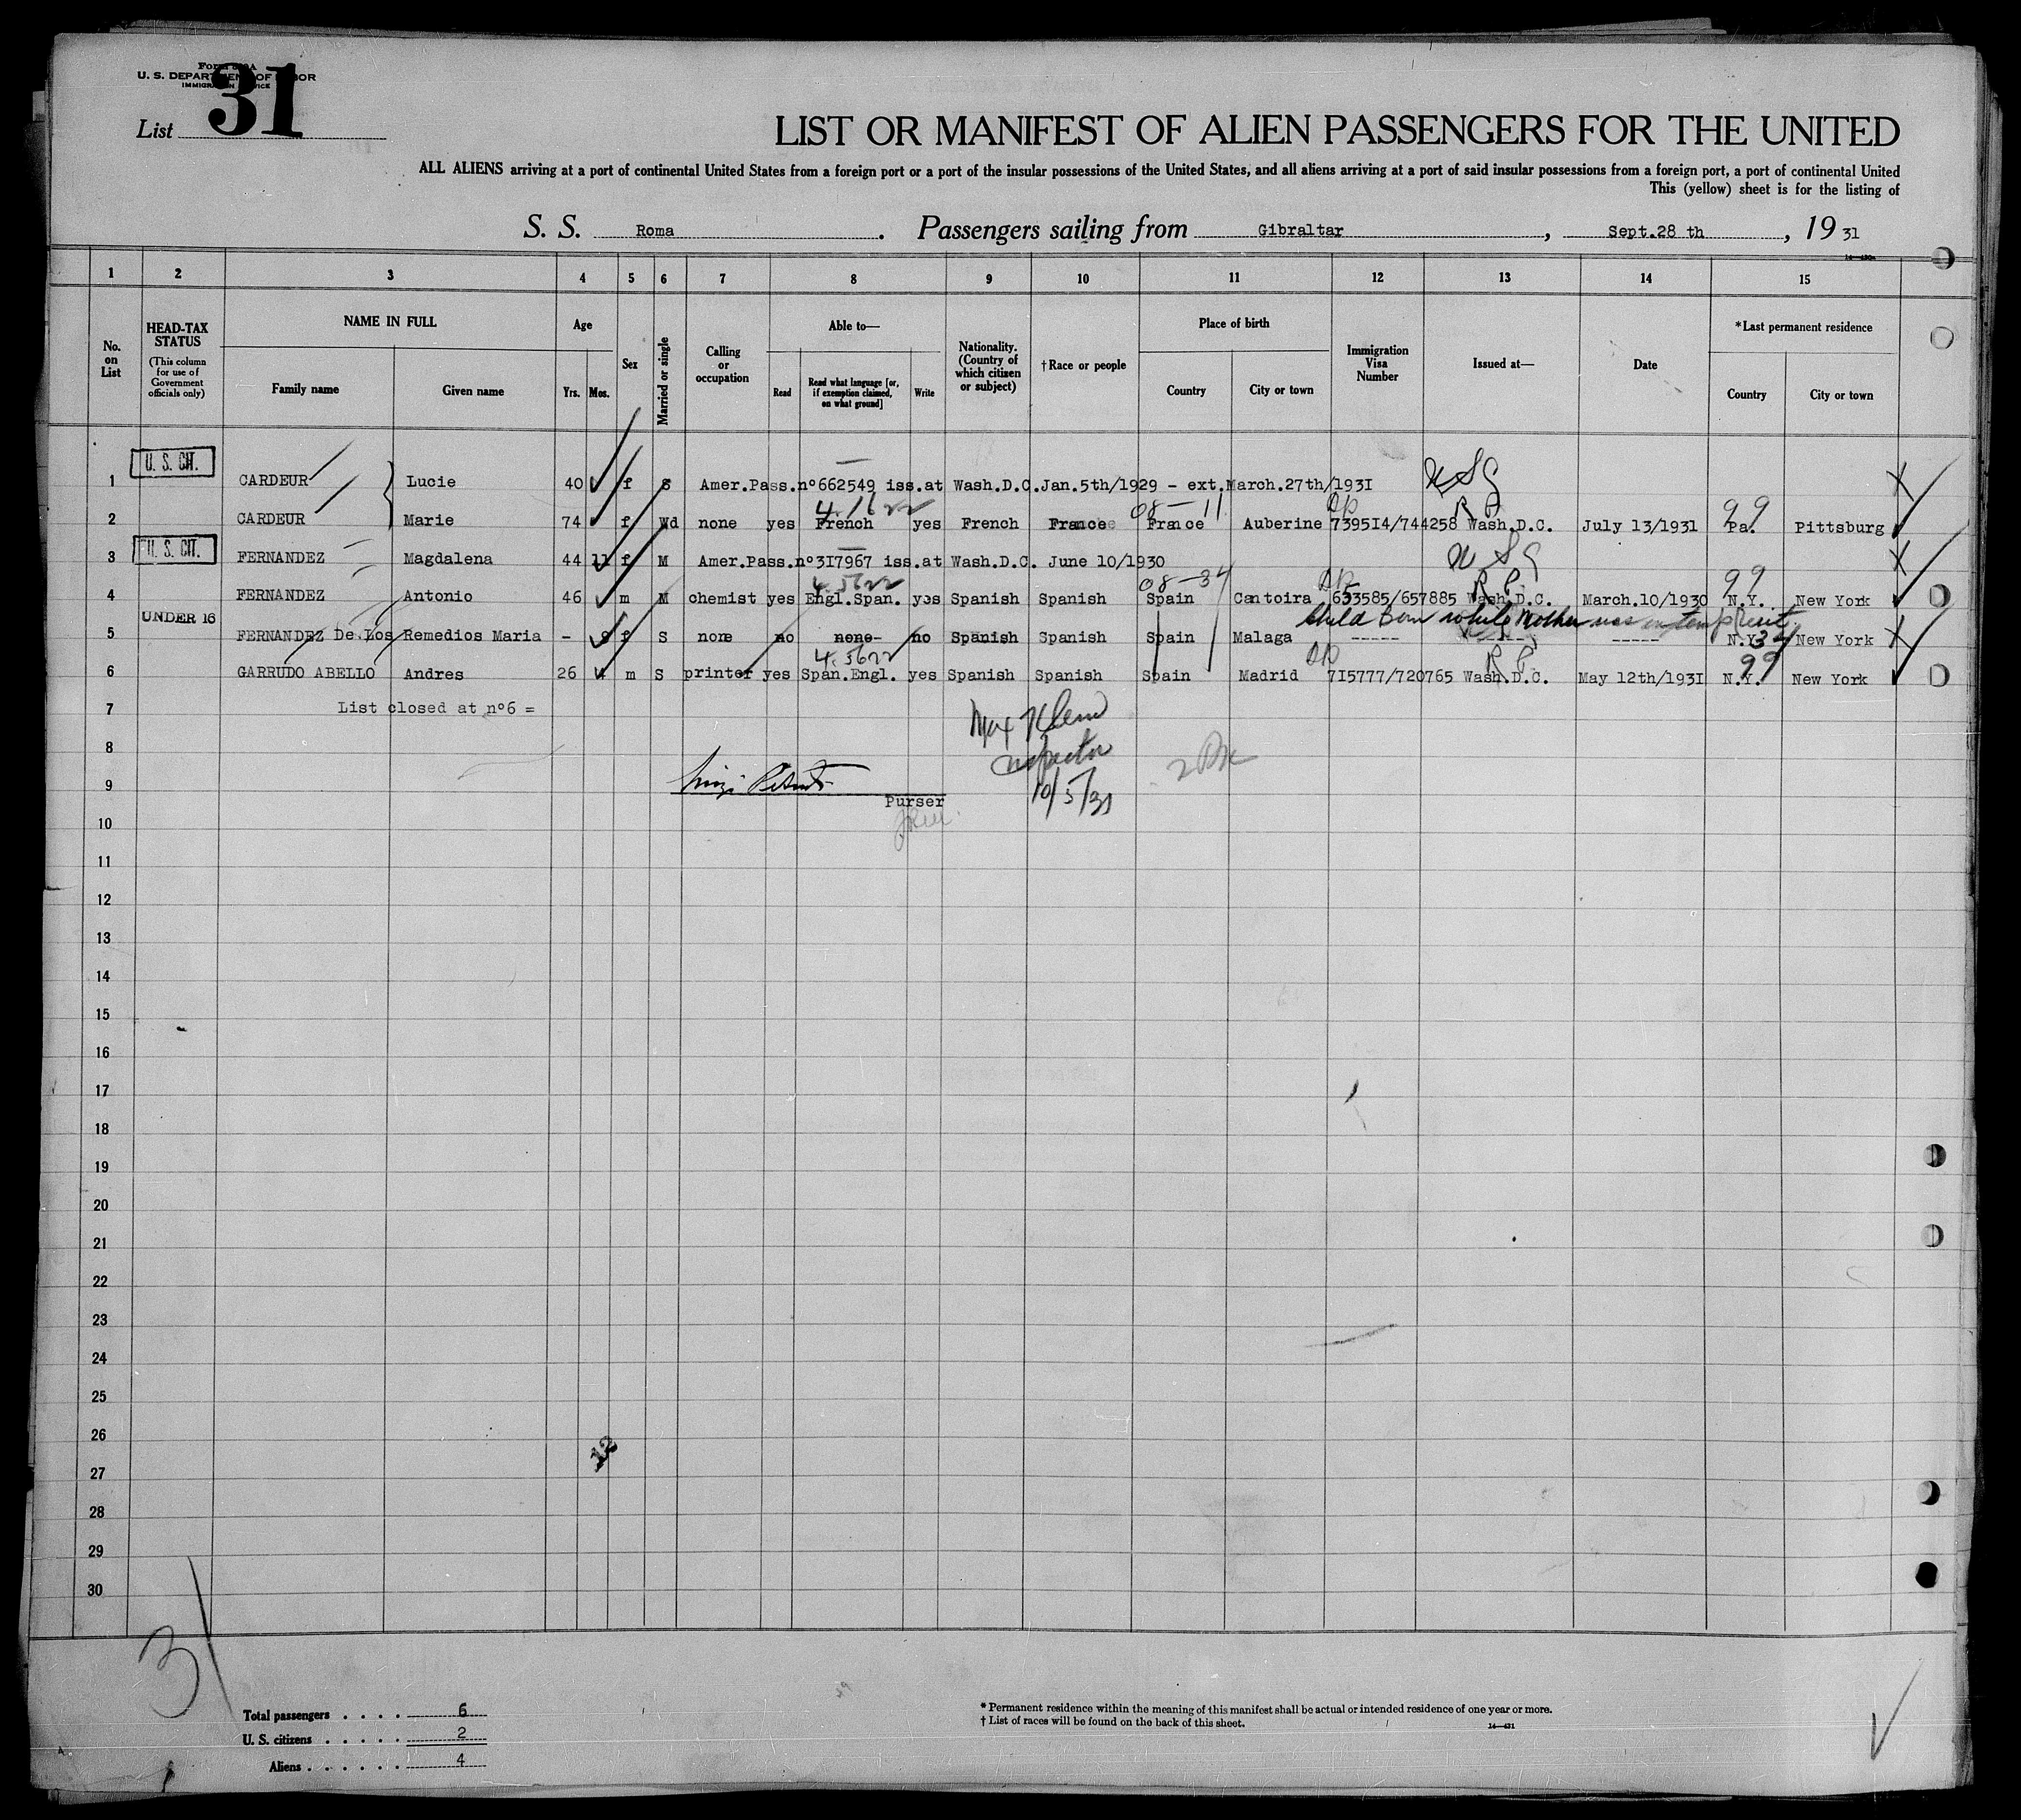 Form 500A
U. S. DEPARTMENT OF LABOR
IMMIGRATION SERVICE
List 31
LIST OR MANIFEST OF ALIEN PASSENGERS FOR THE UNITED
ALL ALIENS arriving at a port of continental United States from a foreign port or a port of the insular possessions of the United States, and all aliens arriving at a port of said insular possessions from a foreign port, a port of continental United
This (yellow) sheet is for the listing of
S. S. Roma. Passengers sailing from Gibraltar, Sept.28 th, 19 31
1 2 3 4 5 6 7 8 9 10 11 12 13 14 15
No. on List
HEAD-TAX STATUS
(This column for use of Government officials only)
NAME IN FULL
Family name Given name
Age
Yrs. Mos.
Sex
Married or single
Calling or occupation
Able to—
Read
Read what language [or, if exemption claimed, on what ground]
Write
Nationality. (Country of which citizen or subject)
†Race or people
Place of birth
Country City or town
Immigration Visa Number
Issued at—
Date
*Last permanent residence
Country City or town
U. S. CIT.
1 CARDEUR Lucie 40 f S Amer.Pass.nº662549 iss.at Wash.D.C.Jan.5th/1929 - ext.March.27th/1931 USC
4.1622 08-11 RP 99
2 CARDEUR Marie 74 f Wd none yes French yes French France France Auberine 739514/744258 Wash.D.C. July 13/1931 Pa. Pittsburg
U. S. CIT.
3 FERNANDEZ Magdalena 44 11 f M Amer.Pass.nº317967 iss.at Wash.D.C. June 10/1930
4.5622 08-34 RP. 99
4 FERNANDEZ Antonio 46 m M chemist yes Engl.Span. yes Spanish Spanish Spain Cantoira 633585/657885 Wash.D.C. March.10/1930 N.Y. New York
UNDER 16
Child Born while Mother was on temp visit
5 FERNANDEZ De Los Remedios Maria - 9 f S none no none- no Spanish Spanish Spain Malaga ----- ----- ----- N.Y. New York
4.5622 RP 99
6 GARRUDO ABELLO Andres 26 4 m S printer yes Span.Engl. yes Spanish Spanish Spain Madrid 715777/720765 Wash.D.C. May 12th/1931 N.Y. New York
7 List closed at nº6 =
Max Klein
8 Inspector
9 10/5/31
Purser
10
11
12
13
14
15
16
17
18
19
20
21
22
23
24
25
26
12
27
28
29
30
31
Total passengers . . . . 6
U. S. citizens . . . . . 2
Aliens . . . . . . 4
* Permanent residence within the meaning of this manifest shall be actual or intended residence of one year or more.
† List of races will be found on the back of this sheet.
14—431